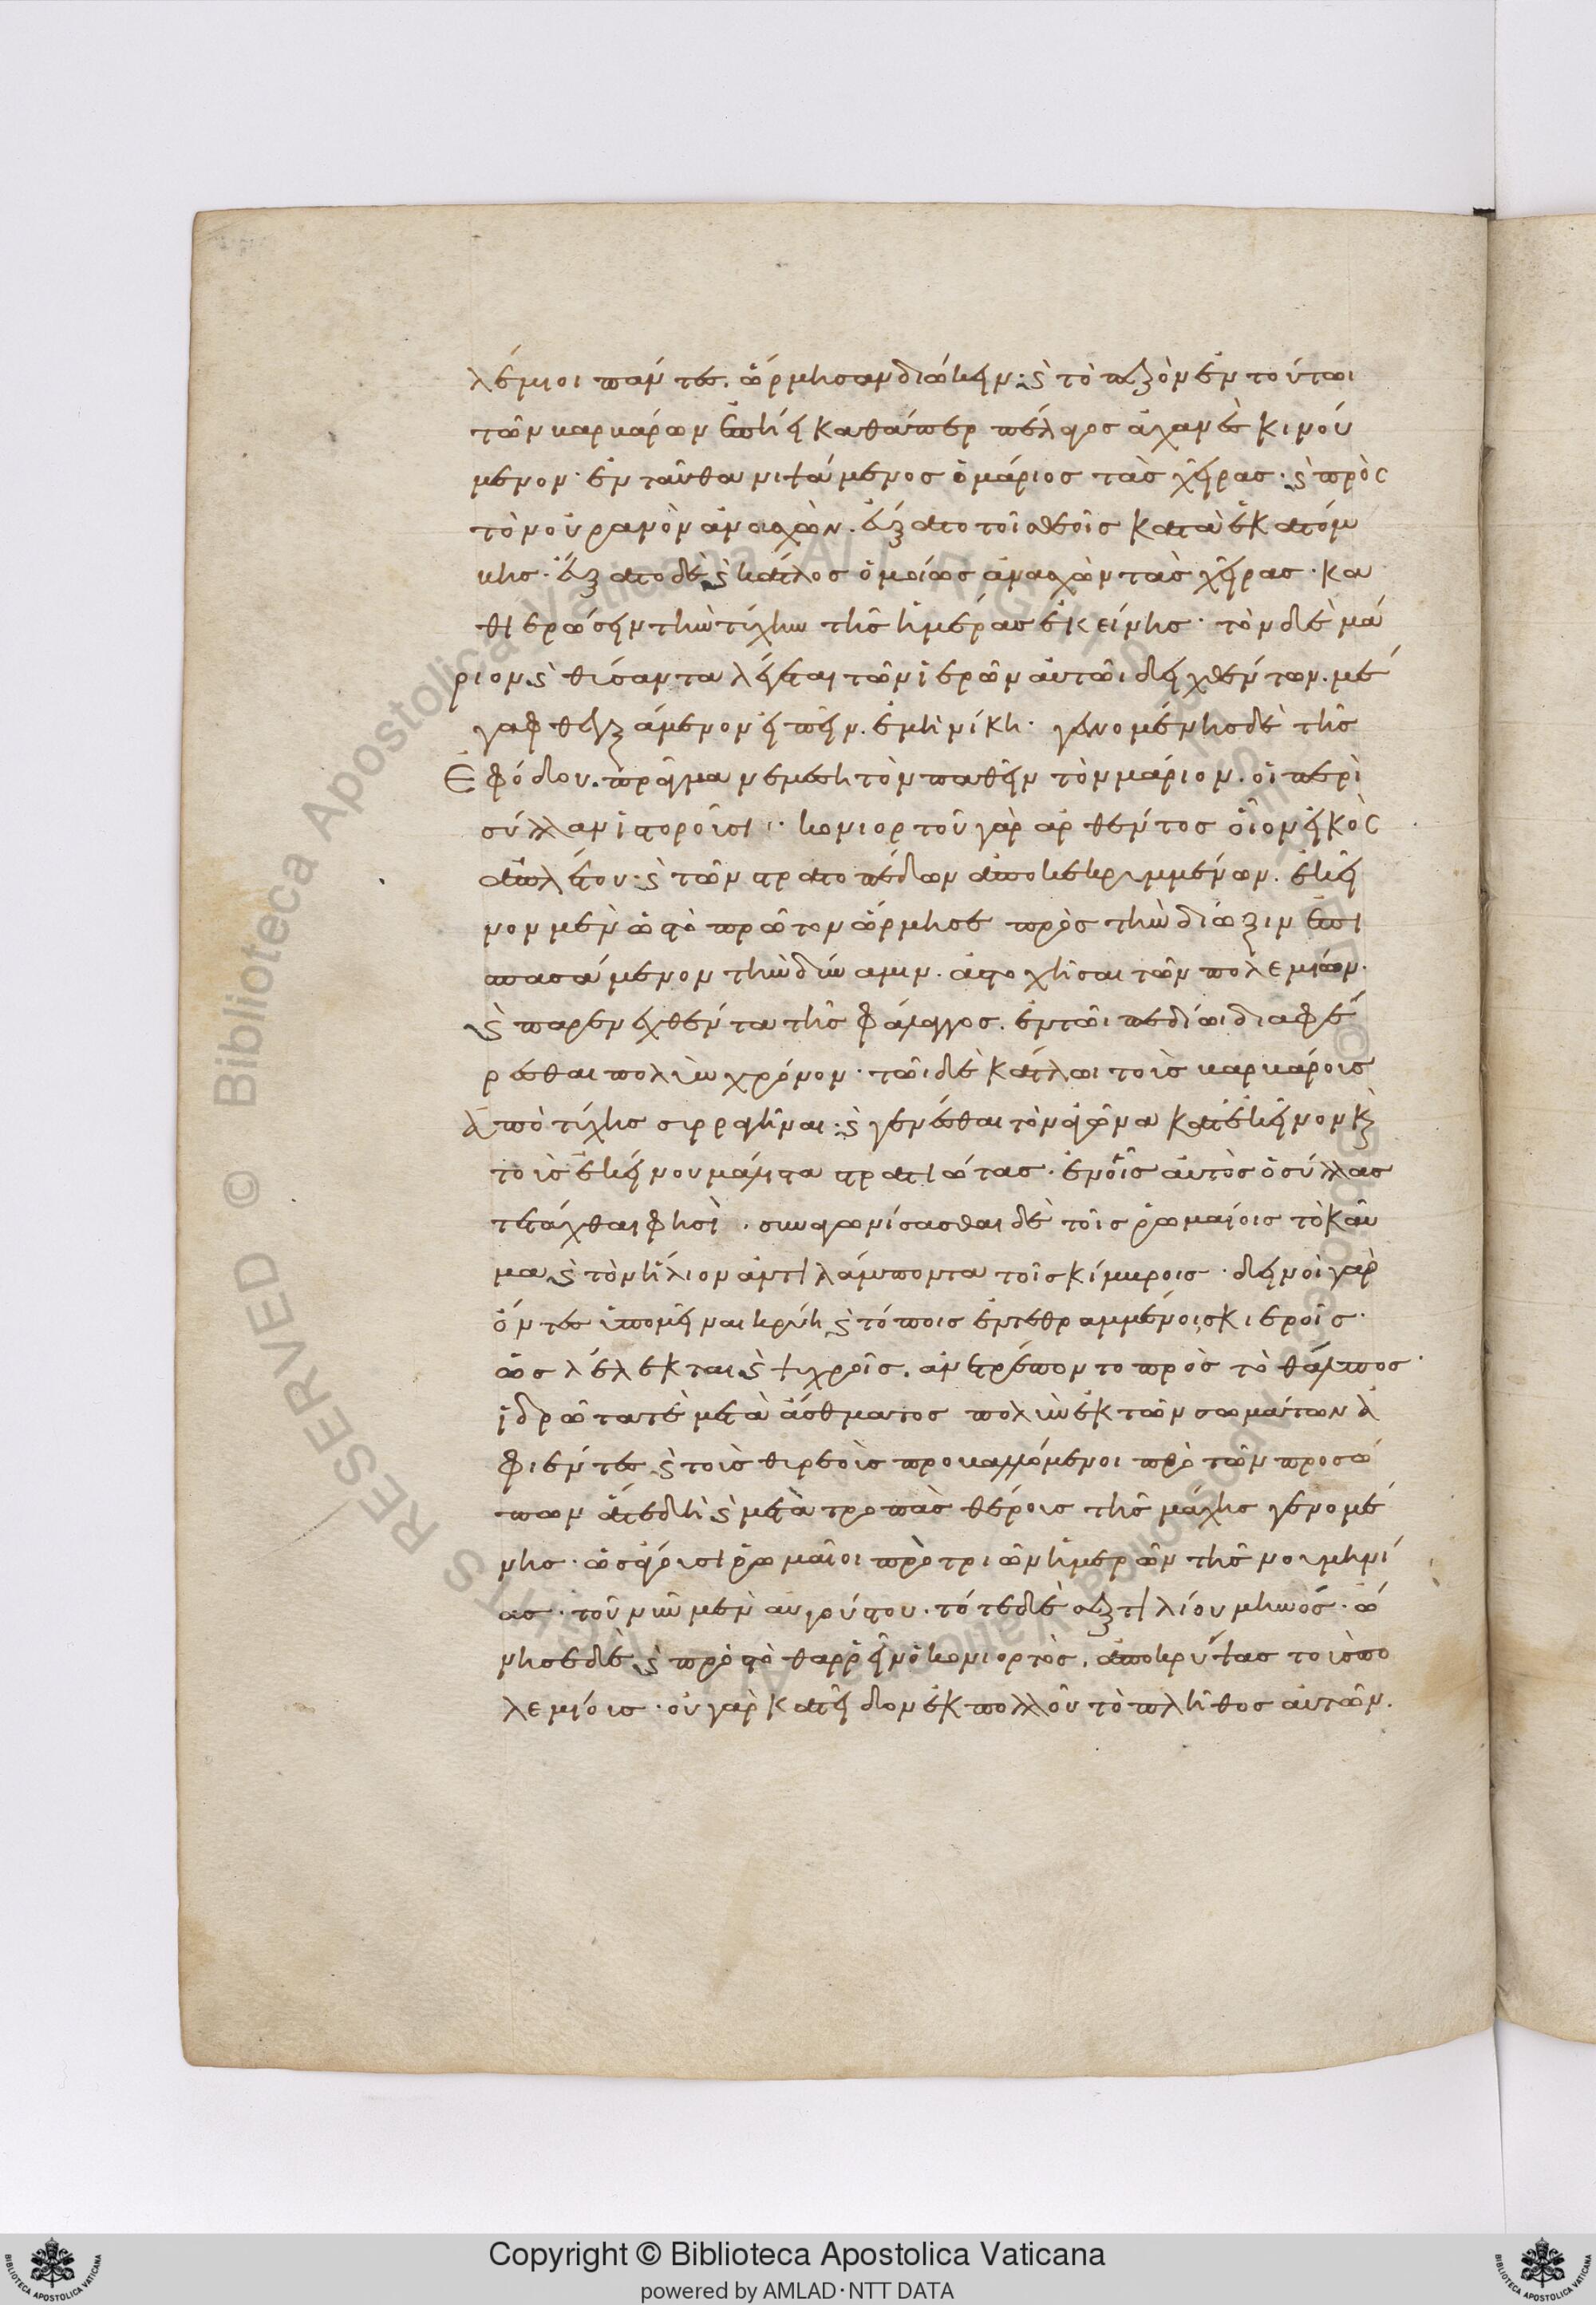 λέμιοι πάντες. ὥρμησαν διώκειν· καὶ τὸ πεζὸν ἐν τούτωι
τῶν βαρβάρων ἐπήει καθάπερ πέλαγος ἀχανὲς κινού
μενον· ἐνταῦθα νιψάμενος ὁ μάριος τὰς χεῖρας· καὶ πρὸς
τὸν οὐρανὸν ἀνασχὼν. εὔξατο τοῖς θεοῖς κατὰ ἑκατόμ
βης· εὔξατο δὲ καὶ κάτλος ὁμοίως ἀνασχὼν τὰς χεῖρας· κα
θιερώσειν τὴν τύχην τῆς ἡμέρας ἐκείνης· τὸν δὲ μά
ριον καὶ θύσαντα λέγεται τῶν ἱερῶν αὐτῶι δειχθέντων. μέ
γα φθεγξάμενον εἰπεῖν. ἐμὴ νίκη· γενομένης δὲ τῆς
ἐφόδου. πρᾶγμα νεμεσητὸν παθεῖν τὸν μάριον. οἱ περὶ
σύλλαν ἱστοροῦσι· κονιορτοῦ γὰρ ἀρθέντος οἷον εἰκὸς
ἀπλέτου· καὶ τῶν στρατοπέδων ἀποκεκρυμμένων. ἐκεῖ
νον μὲν ὡς τὸ πρῶτον ὥρμησε πρὸς τὴν δίωξιν ἐπι
σπασάμενον τὴν δύναμιν. ἀστοχῆσαι τῶν πολεμίων·
καὶ παρενεχθέντα τῆς φάλαγγος. ἐν τῶι πεδίωι διαφέ
ρεσθαι πολὺν χρόνον· τῶι δὲ κάτλωι τοὺς βαρβάρους
ἀπὸ τύχης συρραγῆναι· καὶ γενέσθαι τὸν ἀγῶνα κατ' ἐκεῖνον καὶ
τοὺς ἐκείνου μάλιστα στρατιώτας· ἐν οἷς αὐτὸς ὁ σύλλας
τετάχθαι φησὶ· συναγωνίσασθαι δὲ τοῖς ῥωμαίοις τὸ καῦ
μα καὶ τὸν ἥλιον ἀντιλάμποντα τοῖς κίμβροις· δεινοὶ γὰρ
ὄντες ὑπομεῖναι κρύη καὶ τόποις ἐντεθραμμένοι σκιεροῖς·
ὡς λέλεκται καὶ ψυχροῖς. ἀνετρέποντο πρὸς τὸ θάλπος·
ἱδρῶτά τε μετὰ ἄσθματος πολὺν ἐκ τῶν σωμάτων ἀ
φιέντες καὶ τοὺς θυρεοὺς προβαλλόμενοι πρὸ τῶν προσώ
πων ἅτε δὴ καὶ μετὰ τροπὰς θέρους τῆς μάχης γενομέ
νης· ἃς ἄγουσι ῥωμαῖοι πρὸ τριῶν ἡμερῶν τῆς νουμηνί
ας· τοῦ νῦν μὲν αὐγούστου· τότε δὲ σεξτιλίου μηνός· ὤ
νησε δὲ καὶ πρὸς τὸ θαρρεῖν ὁ κονιορτὸς. ἀποκρύψας τοὺς πο
λεμίους· οὐ γὰρ κατεῖδον ἐκ πολλοῦ τὸ πλῆθος αὐτῶν.
Copyright © Biblioteca Apostolica Vaticana
powered by AMLAD·NTT DATA